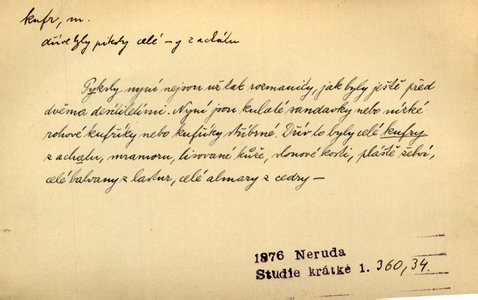 kufr, m.
dříve byly piksly celé – y z achátu
Pyksly nyní nejsou už tak rozmanity, jak byly ještě před
dvěma desítiletími. Nyní jsou kulaté sandavky nebo nízké
rohové kufříky nebo kufříky stříbrné. Dřív to byly celé kufry
z achatu, mramoru, lisované kůže, slonové kosti, pláště želví,
celé balvany z lastur, celé almary z cedry –
1876 Neruda
Studie krátké 1. 360,34.